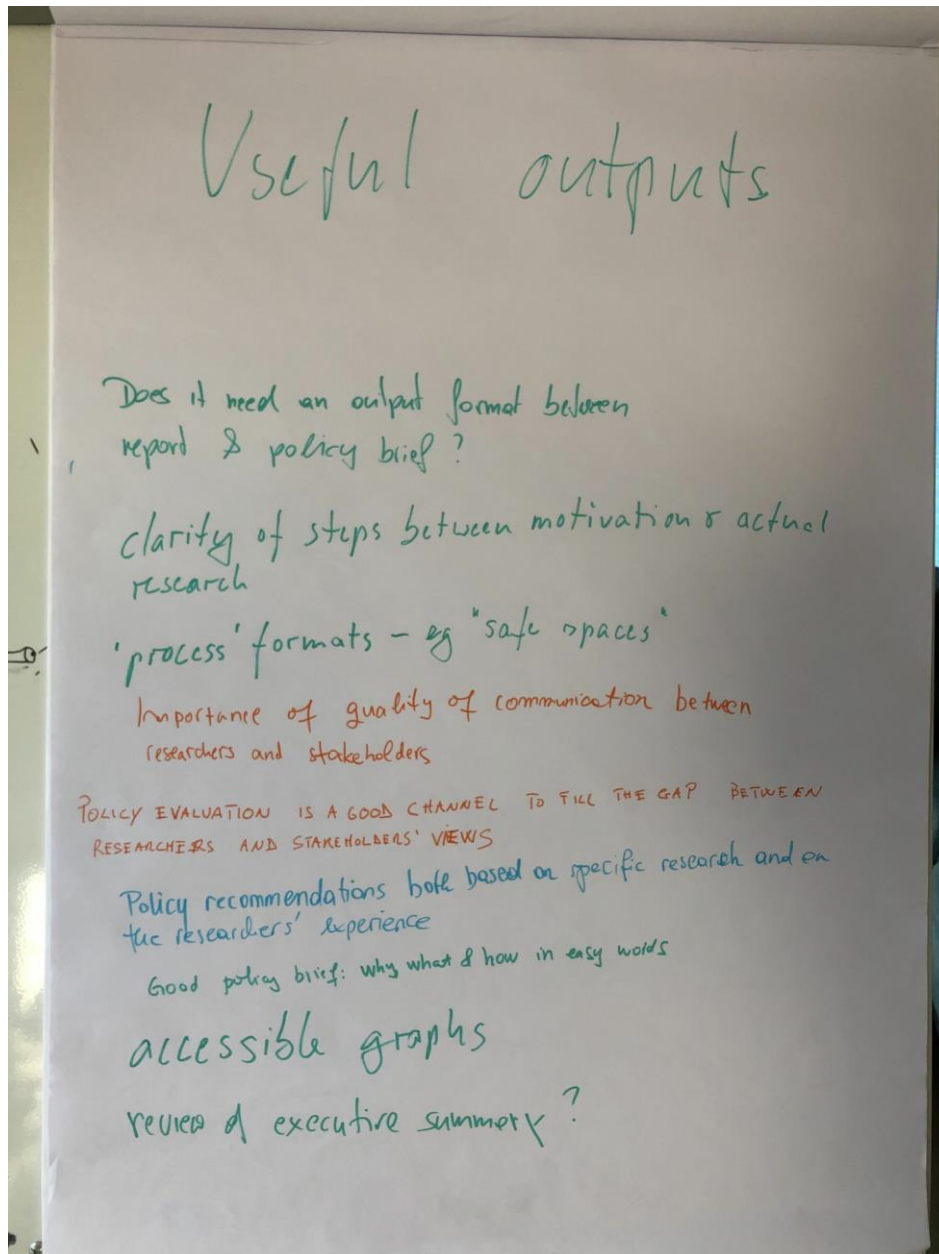 Useful outputs
Does it need an output format between
report & policy brief?
clarity of steps between motivation & actual
research
'process' formats – eg "safe spaces"
Importance of quality of communication between
researchers and stakeholders
POLICY EVALUATION IS A GOOD CHANNEL TO FILL THE GAP BETWEEN
RESEARCHERS AND STAKEHOLDERS' VIEWS
Policy recommendations both based on specific research and on
the researchers' experience
Good policy brief: why what & how in easy words
accessible graphs
review of executive summary?